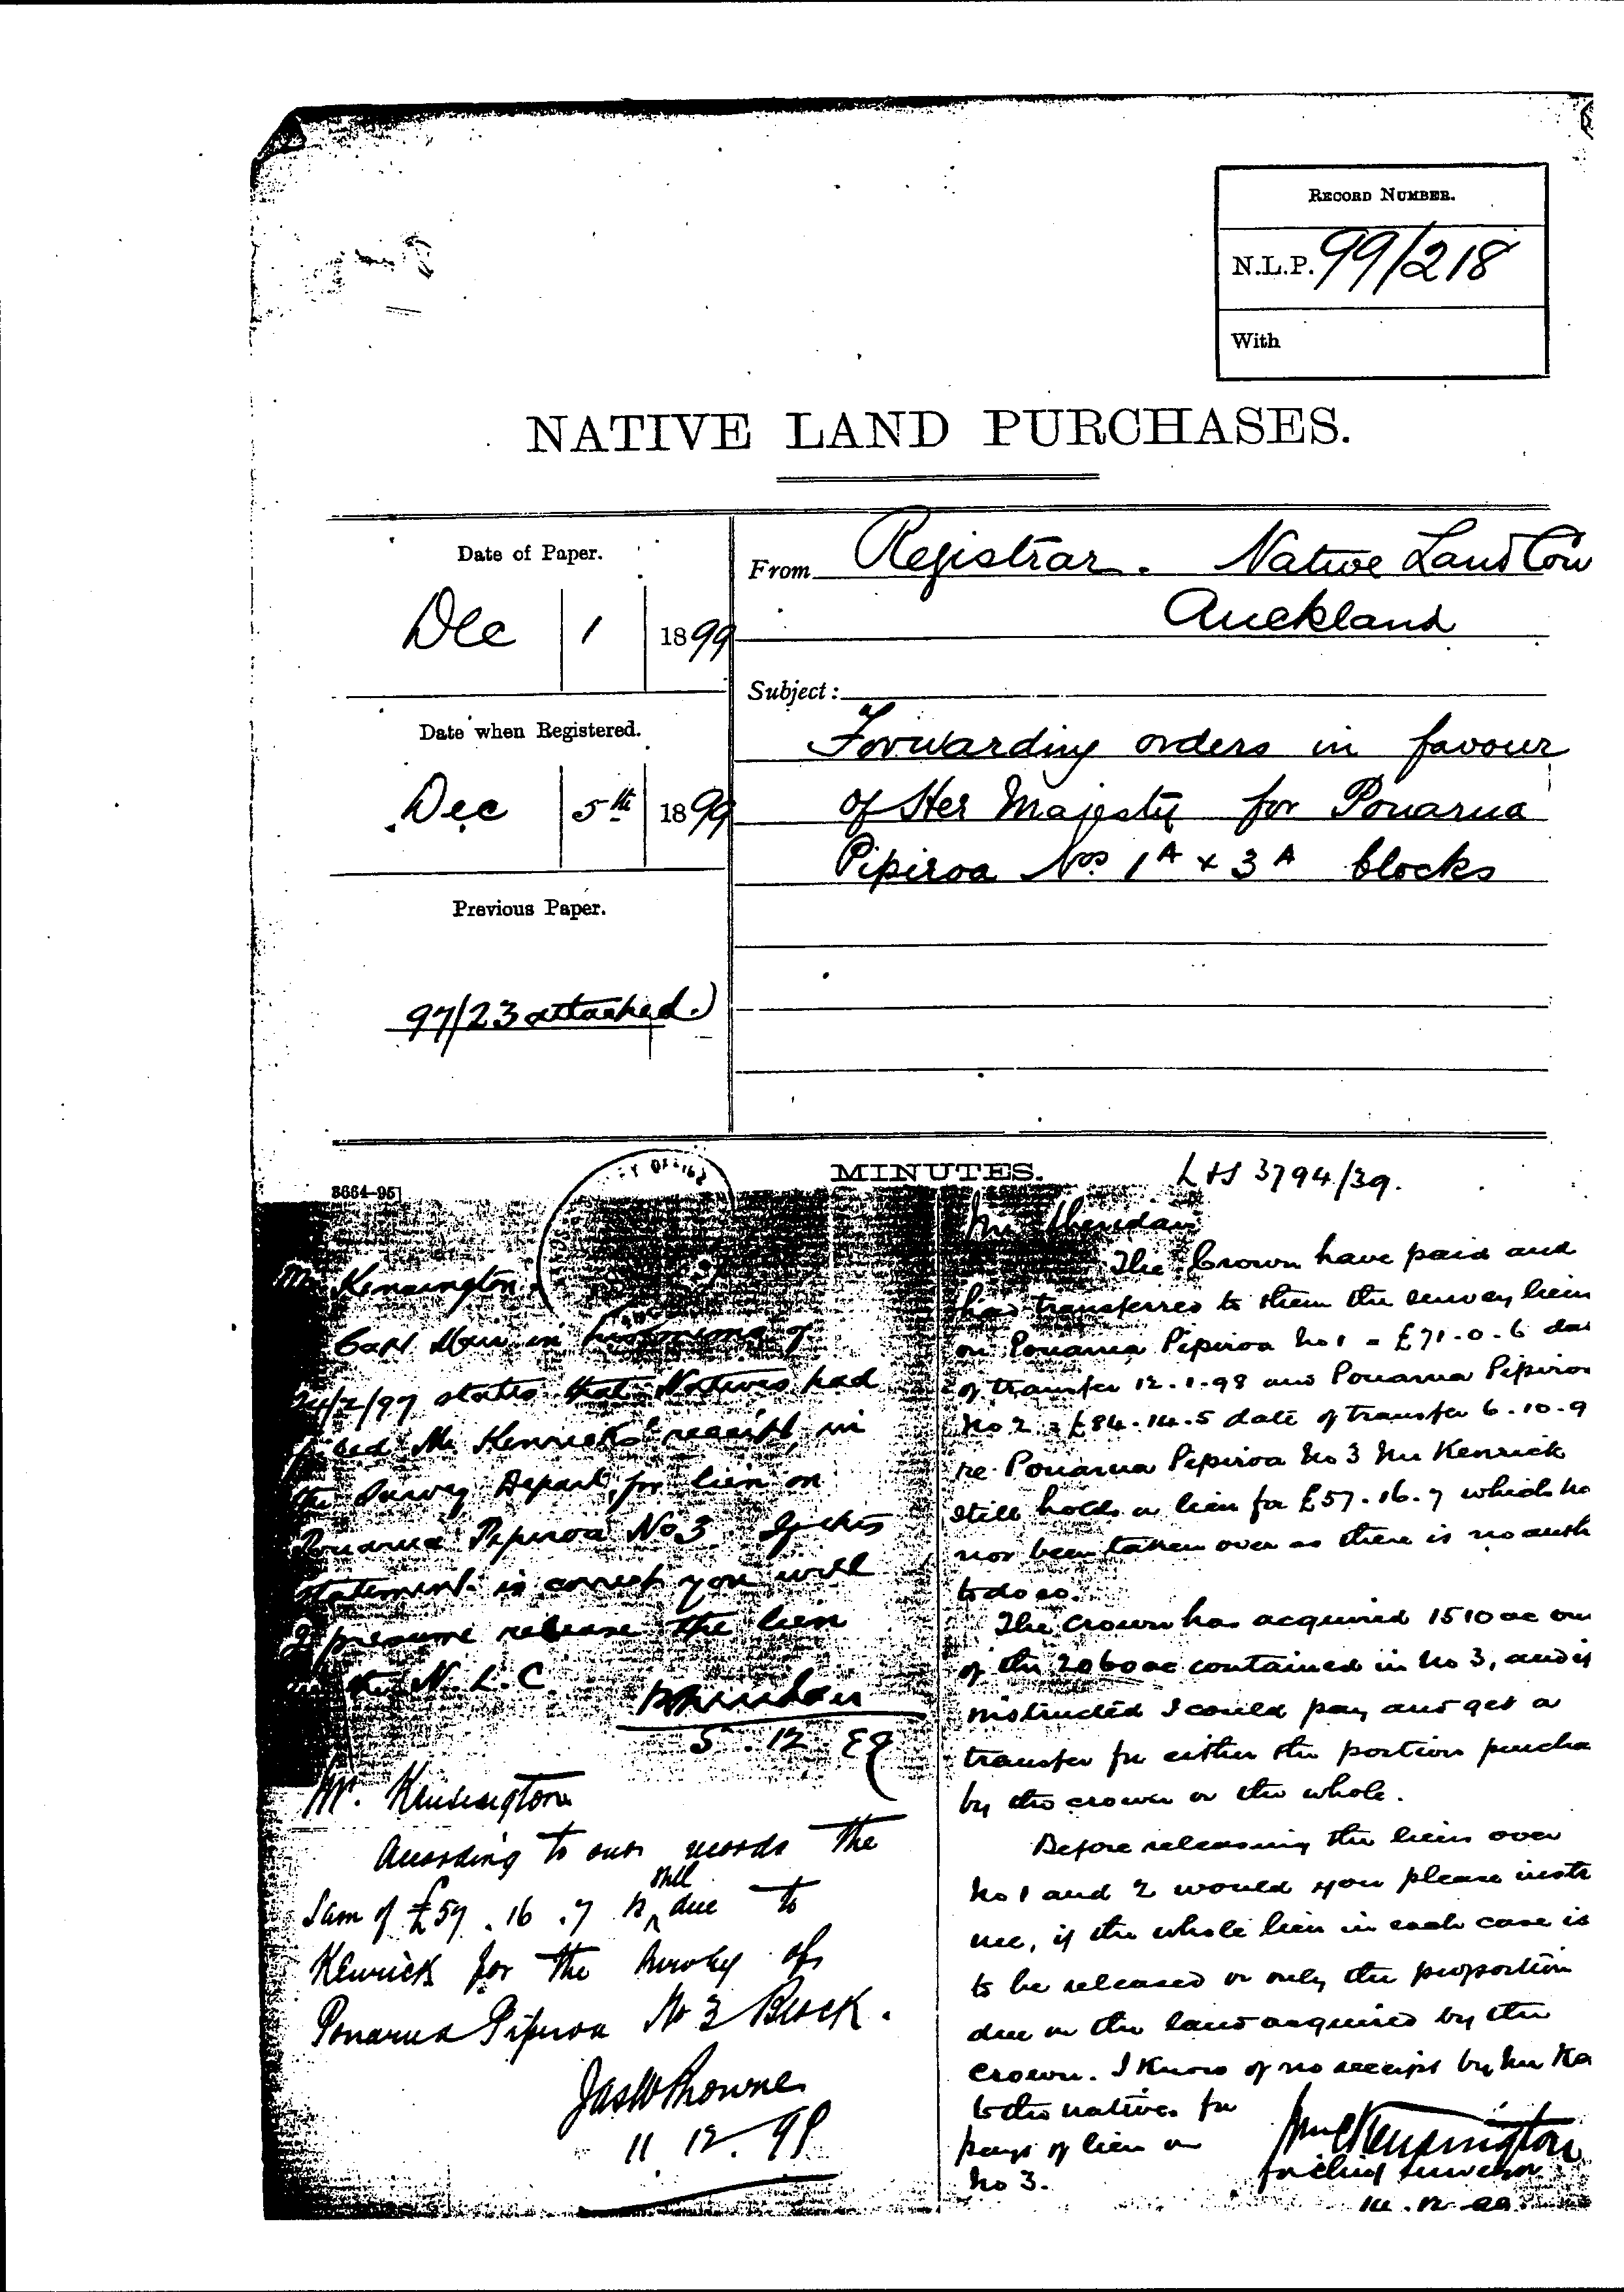 RECORD NUMBER.
N.L.P. 99/218
With
NATIVE LAND PURCHASES.
Date of Paper.
Dec 1 1899
Date when Registered.
Dec 5th 1899
Previous Paper.
97/23 attached.)
From Registrar. Native Land Cou
Auckland
Subject:
Forwarding orders in favour
of Her Majesty for Pouarua
Pipiroa Nos 1A & 3A blocks
MINUTES.
L&S 3794/39.
3664-95]
Mr Kensington.
Capt. Mair in
24/2/97 states that Natives had
Mr Kenrick's receipt in
the Survey Depart, for lien on
Pouarua Pipiroa No 3. If this
statement is correct you will
I presume release the lien
the N.L.C.
5.12.99
Mr. Kensington
According to our records the
Sum of £57.16.7 is still due to
Kenrick for the survey of
Pouarua Pipiroa No 3 Block.
11.12.99
Mr Sheridan
The Crown have paid and
had transferred to them the survey lien
on Pouarua Pipiroa No 1 = £71.0.6 dat
of transfer 12.1.98 and Pouarua Pipiroa
No 2 = £84.14.5 date of transfer 6.10.9
re Pouarua Pipiroa No 3 Mr Kenrick
still holds a lien for £57.16.7 which ha
not been taken over as there is no auth
to do so.
The Crown has acquired 1510 ac out
of the 2060 ac contained in No 3, and if
instructed I could pay and get a
transfer for either the portion purcha
by the crown or the whole.
Before releasing the liens over
No 1 and 2 would you please instr
me, if the whole lien in each case is
to be released or only the proportion
due on the land acquired by the
crown. I know of no receipt by Mr Ke
to the natives for
payt of lien on
No 3.
Wm C Kensington
for Chief Surveyor
14.12.99